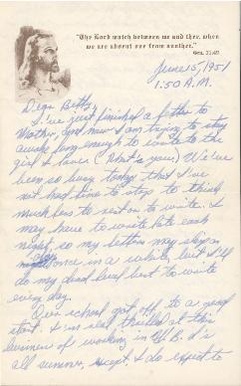 "The Lord watch between me and thee, when
we are absent one from another."
Gen. 31:49
June 15, 1951
1:50 A.M.
Dear Betty,
I've just finished a letter to
Mother, and now I am trying to stay
awake long enough to write to the
girl I love (that's you) We've
been so busy today that I've
not had time to stop to think
much less to rest or to write. I
may have to write late each
night, so my letters may skip a
once in a while, but I'll
do my dead level best to write
every day.
Our school got off to a good
start. I'm real thrilled at this
business of working in V.B.S's
all summer, except I do expect to